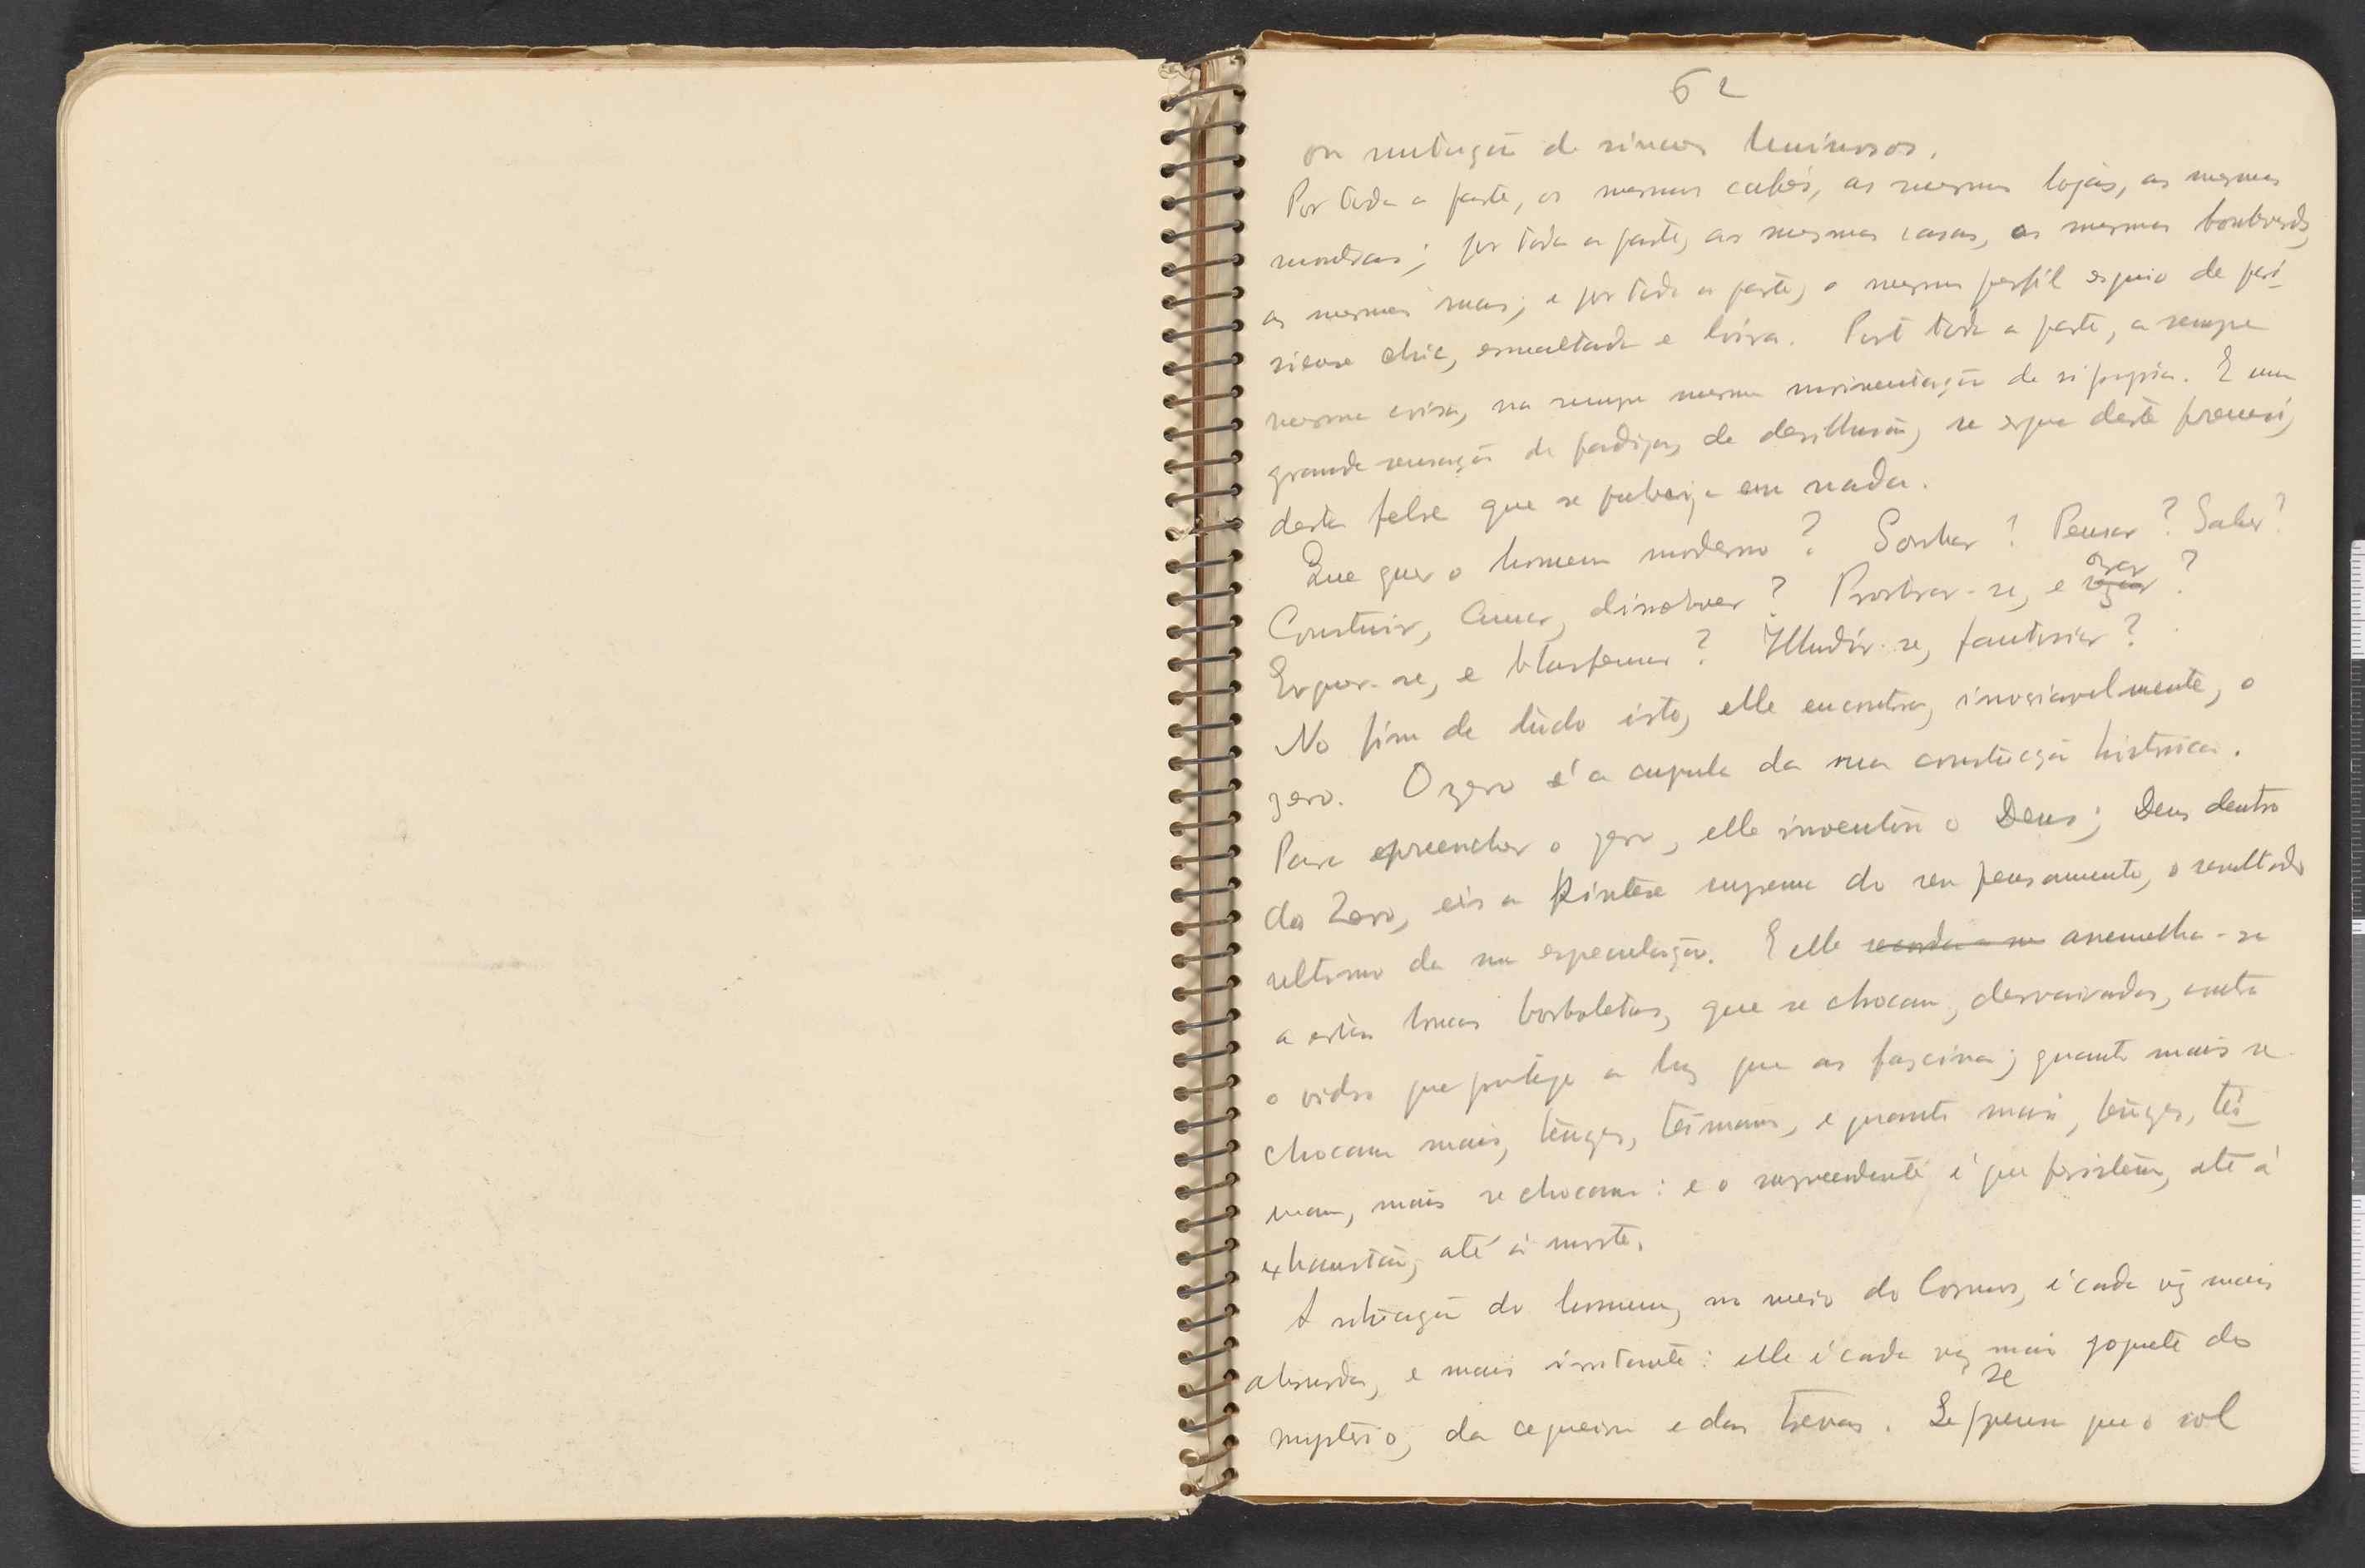 62
ou mutação de sinaes luminosos.
Por toda a parte, os mesmos cafés, as mesmas lojas, as mesmas
montras; por toda a parte, as mesmas casas, os mesmos boulevards,
as mesmas ruas; e por toda a parte, o mesmo perfil esguio de pari-
siense chic, esmaltada e loira. Por toda a parte, a sempre
mesma coisa, na sempre mesma movimentação de si propria. E uma
grande sensação de fadiga, de desillusão, se ergue deste frenesi,
desta febre que se
em nada.
Que quer o homem moderno? Sonhar? Pensar? Saber?
Construir, amar, dissolver? Prostrar-se, e orar?
Erguer-se, e blasfemar? Illudir-se, fantasiar?
No fim de tudo isto, elle encontra, invariavelmente, o
zero. O zero é a cupula da sua construcção historica.
Para preencher o zero, elle inventou o Deus; Deus dentro
do Zero, eis a sintese suprema do seu pensamento, o resultado
ultimo da sua especulação. E elle assemelha-se
a estas loucas borboletas, que se chocam, desvairadas, contra
o vidro que protege a luz que as fascina; quanto mais se
chocam mais, teimam, e quanto mais, tei-
mam, mais se chocam: e o surpreendente é que persistem, até á
exhaustão, até á morte.
A situação do homem, no meio do Cosmos, é cada vez mais
absurda, e mais irritante: elle é cada vez mais joguete do
mysterio, da cegueira e das trevas. Se se pensa que o sol